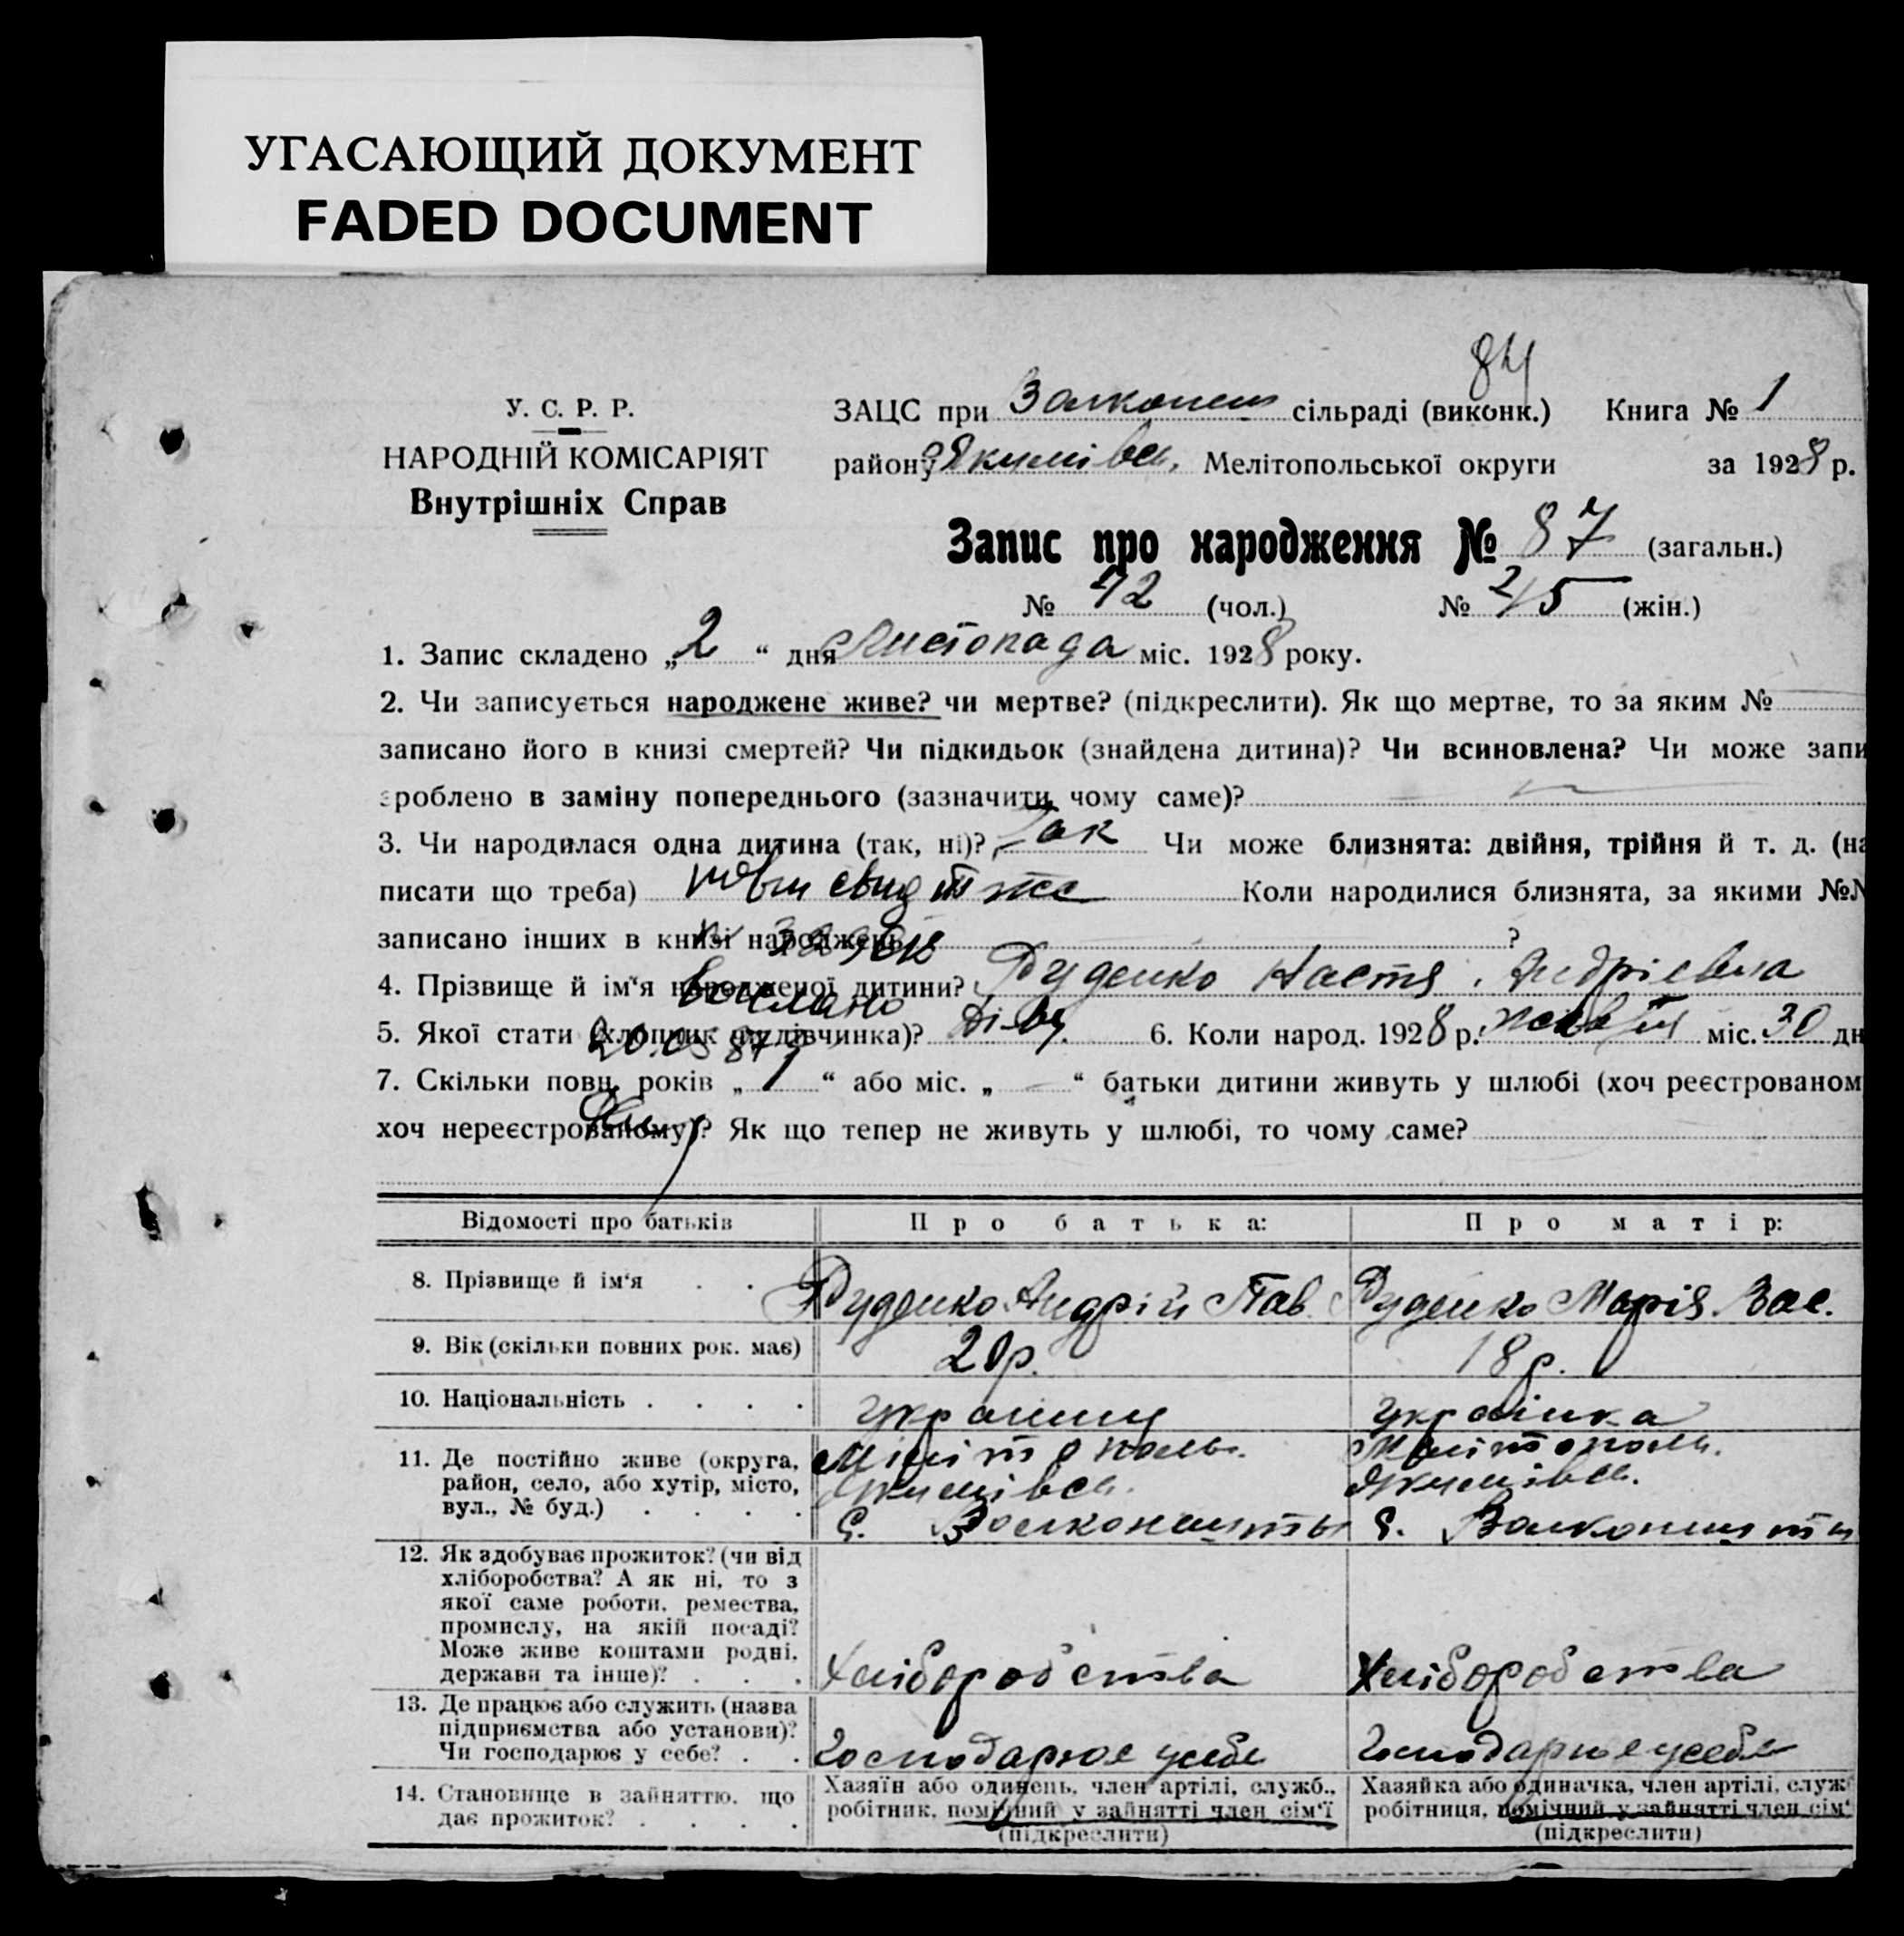 УГАСАЮЩИЙ ДОКУМЕНТ
FADED DOCUMENT
84
У. С. Р. Р.
НАРОДНІЙ КОМІСАРІЯТ
Внутрішніх Справ
ЗАЦС при сільраді (виконк.) Книга № 1
району Якимівск. Мелітопольської округи за 1928 р.
Запис про народження № 87 (загальн.)
№ 42 (чол.) № 45 (жін.)
1. Запис складено „2“ дня Листопада міс. 1928 року.
2. Чи записується народжене живе? чи мертве? (підкреслити). Як що мертве, то за яким №
записано його в книзі смертей? Чи підкидьок (знайдена дитина)? Чи всиновлена? Чи може запи
зроблено в заміну попереднього (зазначити чому саме)?
3. Чи народилася одна дитина (так, ні)? Так Чи може близнята: двійня, трійня й т. д. (на
писати що треба) Коли народилися близнята, за якими №№
записано інших в книзі народжень ?
4. Прізвище й ім‘я народженої дитини? Руденко Настя Андрієвна
5. Якої стати (хлопчик чи дівчинка)? Дівч. 6. Коли народ. 1928 р. міс. 30 дн
7. Скільки повн. років „1“ або міс. „—“ батьки дитини живуть у шлюбі (хоч реєстрованом
хоч нереєстрованому)? Як що тепер не живуть у шлюбі, то чому саме?
Відомості про батьків Про батька: Про матір:
8. Прізвище й ім‘я . . Руденко Андрій Пав. Руденко Марія Вас.
9. Вік (скільки повних рок. має) 20р. 18р.
10. Національність . . . . українець українка
11. Де постійно живе (округа, Мелітополь. Мелітополь.
район, село, або хутір, місто, Якимівск. Якимівск.
вул., № буд.) . . . . с. с.
12. Як здобуває прожиток? (чи від
хліборобства? А як ні, то з
якої саме роботи, ремества,
промислу, на якій посаді?
Може живе коштами родні,
держави та інше)? . . . Хліборобства Хліборобства
13. Де працює або служить (назва
підприємства або установи)?
Чи господарює у себе? . . Господарює у себе Господарює у себе
14. Становище в зайняттю, що Хазяїн або одинець, член артілі, служб., Хазяйка або одиначка, член артілі, служ
дає прожиток? . . . . робітник, помічний у зайнятті член сім‘ї робітниця, помічний у зайнятті член сім‘
(підкреслити) (підкреслити)